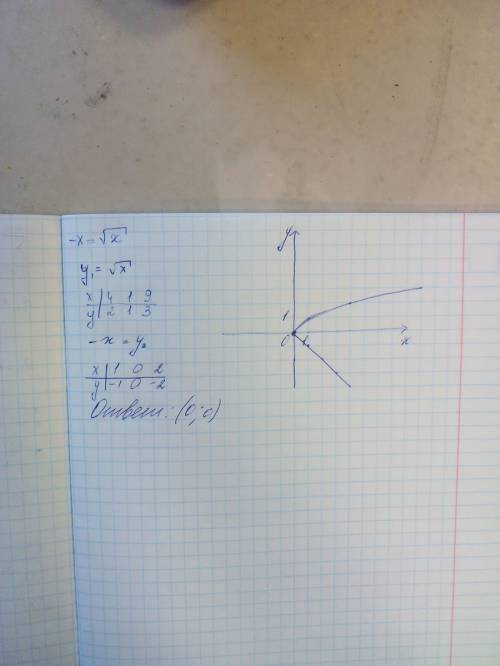 -x = √x
y₁ = √x
x | 4 1 9
y | 2 1 3
- x = y₂
x | 1 0 2
y | -1 0 -2
Ответ: (0; 0)
y
1
0 1 x